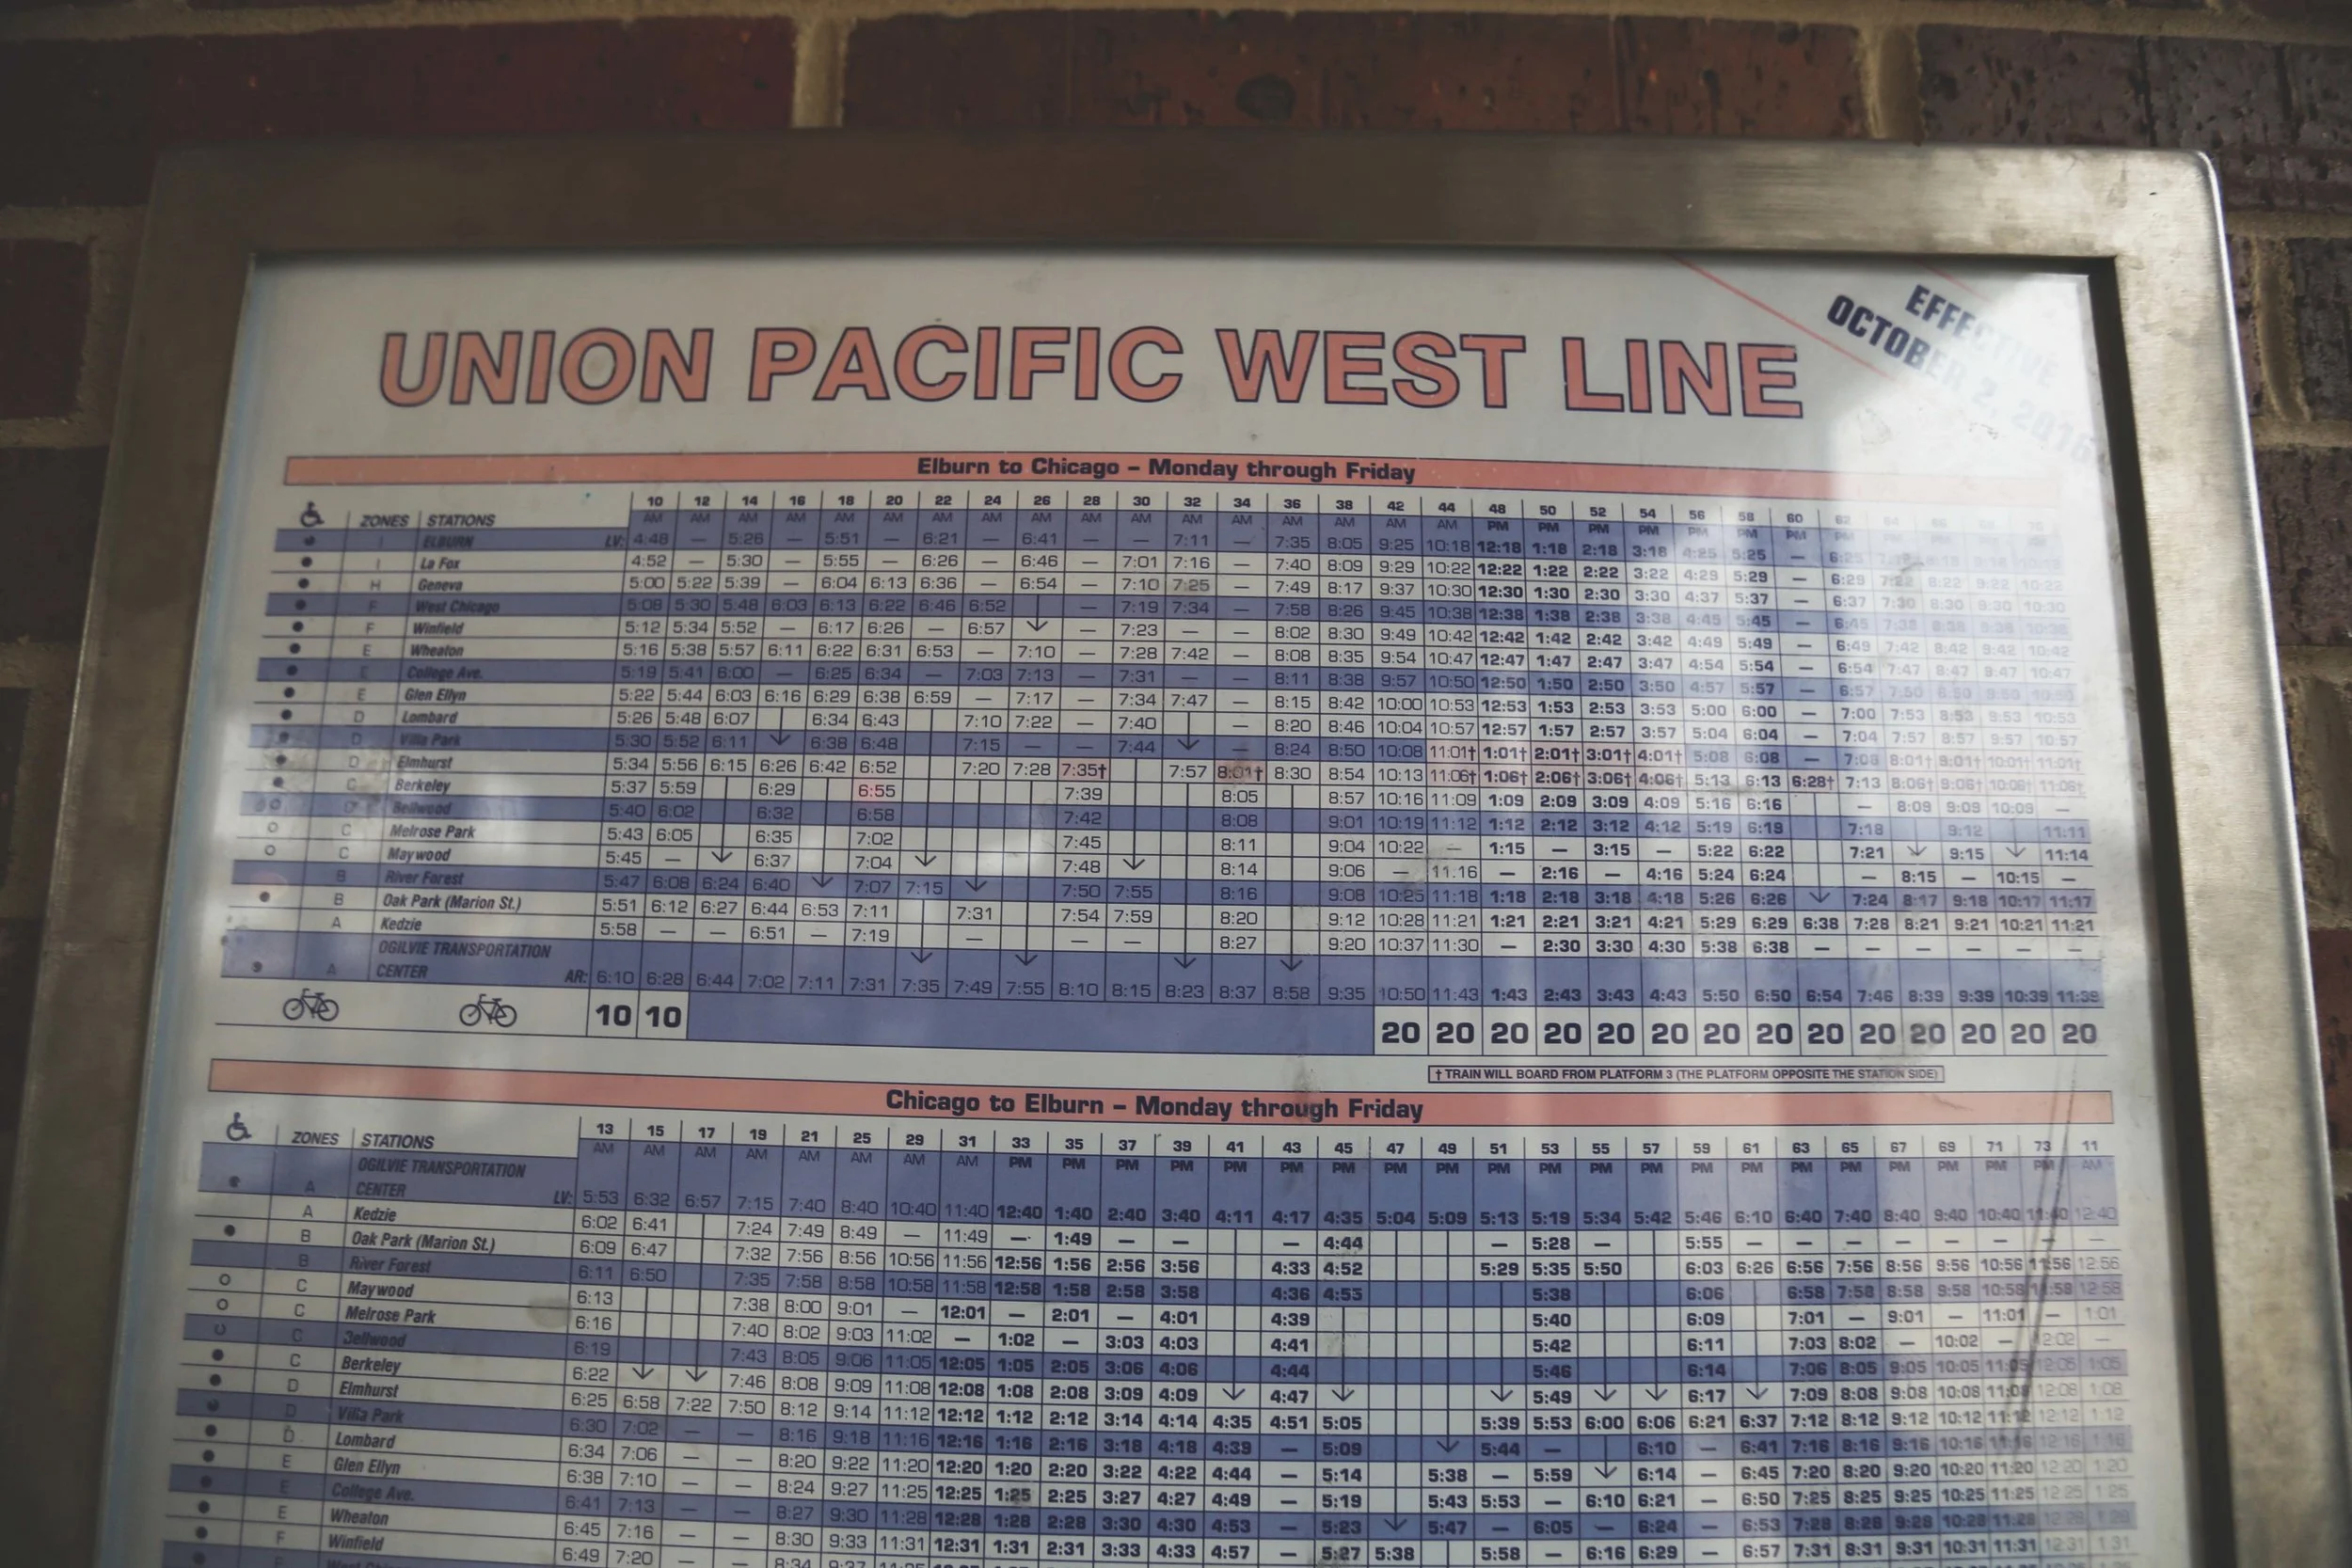 EFFECTIVE
OCTOBER 2, 2016
UNION PACIFIC WEST LINE
Elburn to Chicago – Monday through Friday
ZONES STATIONS 10 12 14 16 18 20 22 24 26 28 30 32 34 36 38 42 44 48 50 52 54 56 58 60 62
AM AM AM AM AM AM AM AM AM AM AM AM AM AM AM AM AM PM PM PM PM PM PM PM PM
I ELBURN LV: 4:48 — 5:26 — 5:51 — 6:21 — 6:41 — — 7:11 — 7:35 8:05 9:25 10:18 12:18 1:18 2:18 3:18 4:25 5:25 — 6:25
I La Fox 4:52 — 5:30 — 5:55 — 6:26 — 6:46 — 7:01 7:16 — 7:40 8:09 9:29 10:22 12:22 1:22 2:22 3:22 4:29 5:29 — 6:29 7:22 8:22 9:22 10:22
H Geneva 5:00 5:22 5:39 — 6:04 6:13 6:36 — 6:54 — 7:10 7:25 — 7:49 8:17 9:37 10:30 12:30 1:30 2:30 3:30 4:37 5:37 — 6:37 7:30 8:30 9:30 10:30
F West Chicago 5:08 5:30 5:48 6:03 6:13 6:22 6:46 6:52 — 7:19 7:34 — 7:58 8:26 9:45 10:38 12:38 1:38 2:38 3:38 4:45 5:45 — 6:45 7:38 8:38 9:38 10:38
F Winfield 5:12 5:34 5:52 — 6:17 6:26 — 6:57 — 7:23 — — 8:02 8:30 9:49 10:42 12:42 1:42 2:42 3:42 4:49 5:49 — 6:49 7:42 8:42 9:42 10:42
E Wheaton 5:16 5:38 5:57 6:11 6:22 6:31 6:53 — 7:10 — 7:28 7:42 — 8:08 8:35 9:54 10:47 12:47 1:47 2:47 3:47 4:54 5:54 — 6:54 7:47 8:47 9:47 10:47
E College Ave. 5:19 5:41 6:00 — 6:25 6:34 — 7:03 7:13 — 7:31 — — 8:11 8:38 9:57 10:50 12:50 1:50 2:50 3:50 4:57 5:57 — 6:57 7:50 8:50 9:50 10:50
E Glen Ellyn 5:22 5:44 6:03 6:16 6:29 6:38 6:59 — 7:17 — 7:34 7:47 — 8:15 8:42 10:00 10:53 12:53 1:53 2:53 3:53 5:00 6:00 — 7:00 7:53 8:53 9:53 10:53
D Lombard 5:26 5:48 6:07 6:34 6:43 7:10 7:22 — 7:40 — 8:20 8:46 10:04 10:57 12:57 1:57 2:57 3:57 5:04 6:04 — 7:04 7:57 8:57 9:57 10:57
D Villa Park 5:30 5:52 6:11 6:38 6:48 7:15 — — 7:44 — 8:24 8:50 10:08 11:01† 1:01† 2:01† 3:01† 4:01† 5:08 6:08 — 7:08 8:01† 9:01† 10:01† 11:01†
D Elmhurst 5:34 5:56 6:15 6:26 6:42 6:52 7:20 7:28 7:35† 7:57 8:01† 8:30 8:54 10:13 11:06† 1:06† 2:06† 3:06† 4:06† 5:13 6:13 6:28† 7:13 8:06† 9:06† 10:06† 11:06†
C Berkeley 5:37 5:59 6:29 6:55 7:39 8:05 8:57 10:16 11:09 1:09 2:09 3:09 4:09 5:16 6:16 — 8:09 9:09 10:09 —
Bellwood 5:40 6:02 6:32 6:58 7:42 8:08 9:01 10:19 11:12 1:12 2:12 3:12 4:12 5:19 6:19 7:18 9:12 11:11
C Melrose Park 5:43 6:05 6:35 7:02 7:45 8:11 9:04 10:22 — 1:15 — 3:15 — 5:22 6:22 7:21 9:15 11:14
C Maywood 5:45 — 6:37 7:04 7:48 8:14 9:06 — 11:16 — 2:16 — 4:16 5:24 6:24 — 8:15 — 10:15 —
B River Forest 5:47 6:08 6:24 6:40 7:07 7:15 7:50 7:55 8:16 9:08 10:25 11:18 1:18 2:18 3:18 4:18 5:26 6:26 7:24 8:17 9:18 10:17 11:17
B Oak Park (Marion St.) 5:51 6:12 6:27 6:44 6:53 7:11 7:31 7:54 7:59 8:20 9:12 10:28 11:21 1:21 2:21 3:21 4:21 5:29 6:29 6:38 7:28 8:21 9:21 10:21 11:21
A Kedzie 5:58 — — 6:51 — 7:19 — — — 8:27 9:20 10:37 11:30 — 2:30 3:30 4:30 5:38 6:38 — — — — — —
OGILVIE TRANSPORTATION
A CENTER AR: 6:10 6:28 6:44 7:02 7:11 7:31 7:35 7:49 7:55 8:10 8:15 8:23 8:37 8:58 9:35 10:50 11:43 1:43 2:43 3:43 4:43 5:50 6:50 6:54 7:46 8:39 9:39 10:39 11:39
10 10 20 20 20 20 20 20 20 20 20 20 20 20 20 20
† TRAIN WILL BOARD FROM PLATFORM 3 (THE PLATFORM OPPOSITE THE STATION SIDE)
Chicago to Elburn – Monday through Friday
ZONES STATIONS 13 15 17 19 21 25 29 31 33 35 37 39 41 43 45 47 49 51 53 55 57 59 61 63 65 67 69 71 73 11
AM AM AM AM AM AM AM AM PM PM PM PM PM PM PM PM PM PM PM PM PM PM PM PM PM PM PM PM PM AM
OGILVIE TRANSPORTATION
A CENTER LV: 5:53 6:32 6:57 7:15 7:40 8:40 10:40 11:40 12:40 1:40 2:40 3:40 4:11 4:17 4:35 5:04 5:09 5:13 5:19 5:34 5:42 5:46 6:10 6:40 7:40 8:40 9:40 10:40 11:40 12:40
A Kedzie 6:02 6:41 7:24 7:49 8:49 — 11:49 — 1:49 — — — 4:44 — 5:28 — 5:55 — — — — — — — —
B Oak Park (Marion St.) 6:09 6:47 7:32 7:56 8:56 10:56 11:56 12:56 1:56 2:56 3:56 4:33 4:52 5:29 5:35 5:50 6:03 6:26 6:56 7:56 8:56 9:56 10:56 11:56 12:56
B River Forest 6:11 6:50 7:35 7:58 8:58 10:58 11:58 12:58 1:58 2:58 3:58 4:36 4:55 5:38 6:06 6:58 7:58 8:58 9:58 10:58 11:58 12:58
C Maywood 6:13 7:38 8:00 9:01 — 12:01 — 2:01 — 4:01 4:39 5:40 6:09 7:01 — 9:01 — 11:01 — 1:01
C Melrose Park 6:16 7:40 8:02 9:03 11:02 — 1:02 — 3:03 4:03 4:41 5:42 6:11 7:03 8:02 — 10:02 — 12:02 —
C Bellwood 6:19 7:43 8:05 9:06 11:05 12:05 1:05 2:05 3:06 4:06 4:44 5:46 6:14 7:06 8:05 9:05 10:05 11:05 12:05 1:05
C Berkeley 6:22 7:46 8:08 9:09 11:08 12:08 1:08 2:08 3:09 4:09 4:47 5:49 6:17 7:09 8:08 9:08 10:08 11:08 12:08 1:08
D Elmhurst 6:25 6:58 7:22 7:50 8:12 9:14 11:12 12:12 1:12 2:12 3:14 4:14 4:35 4:51 5:05 5:39 5:53 6:00 6:06 6:21 6:37 7:12 8:12 9:12 10:12 11:12 12:12 1:12
D Villa Park 6:30 7:02 — — 8:16 9:18 11:16 12:16 1:16 2:16 3:18 4:18 4:39 — 5:09 5:44 — 6:10 — 6:41 7:16 8:16 9:16 10:16 11:16 12:16 1:16
D Lombard 6:34 7:06 — — 8:20 9:22 11:20 12:20 1:20 2:20 3:22 4:22 4:44 — 5:14 5:38 — 5:59 6:14 — 6:45 7:20 8:20 9:20 10:20 11:20 12:20 1:20
E Glen Ellyn 6:38 7:10 — — 8:24 9:27 11:25 12:25 1:25 2:25 3:27 4:27 4:49 — 5:19 5:43 5:53 — 6:10 6:21 — 6:50 7:25 8:25 9:25 10:25 11:25 12:25 1:25
E College Ave. 6:41 7:13 — — 8:27 9:30 11:28 12:28 1:28 2:28 3:30 4:30 4:53 — 5:23 5:47 — 6:05 — 6:24 — 6:53 7:28 8:28 9:28 10:28 11:28 12:28 1:28
E Wheaton 6:45 7:16 — — 8:30 9:33 11:31 12:31 1:31 2:31 3:33 4:33 4:57 — 5:27 5:38 5:58 — 6:16 6:29 — 6:57 7:31 8:31 9:31 10:31 11:31 12:31 1:31
F Winfield 6:49 7:20 — — 8:34 9:37